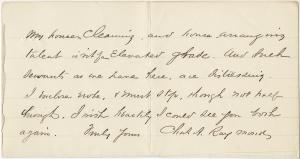 My house Cleaning, and house arranging
talent is not of an Elevated grade. And such
servants as we have here, are distressing.
I enclose note, & must stop, though not half
through. I wish heartily I could see you both
again. Truly Yours Chas. A. Raymond